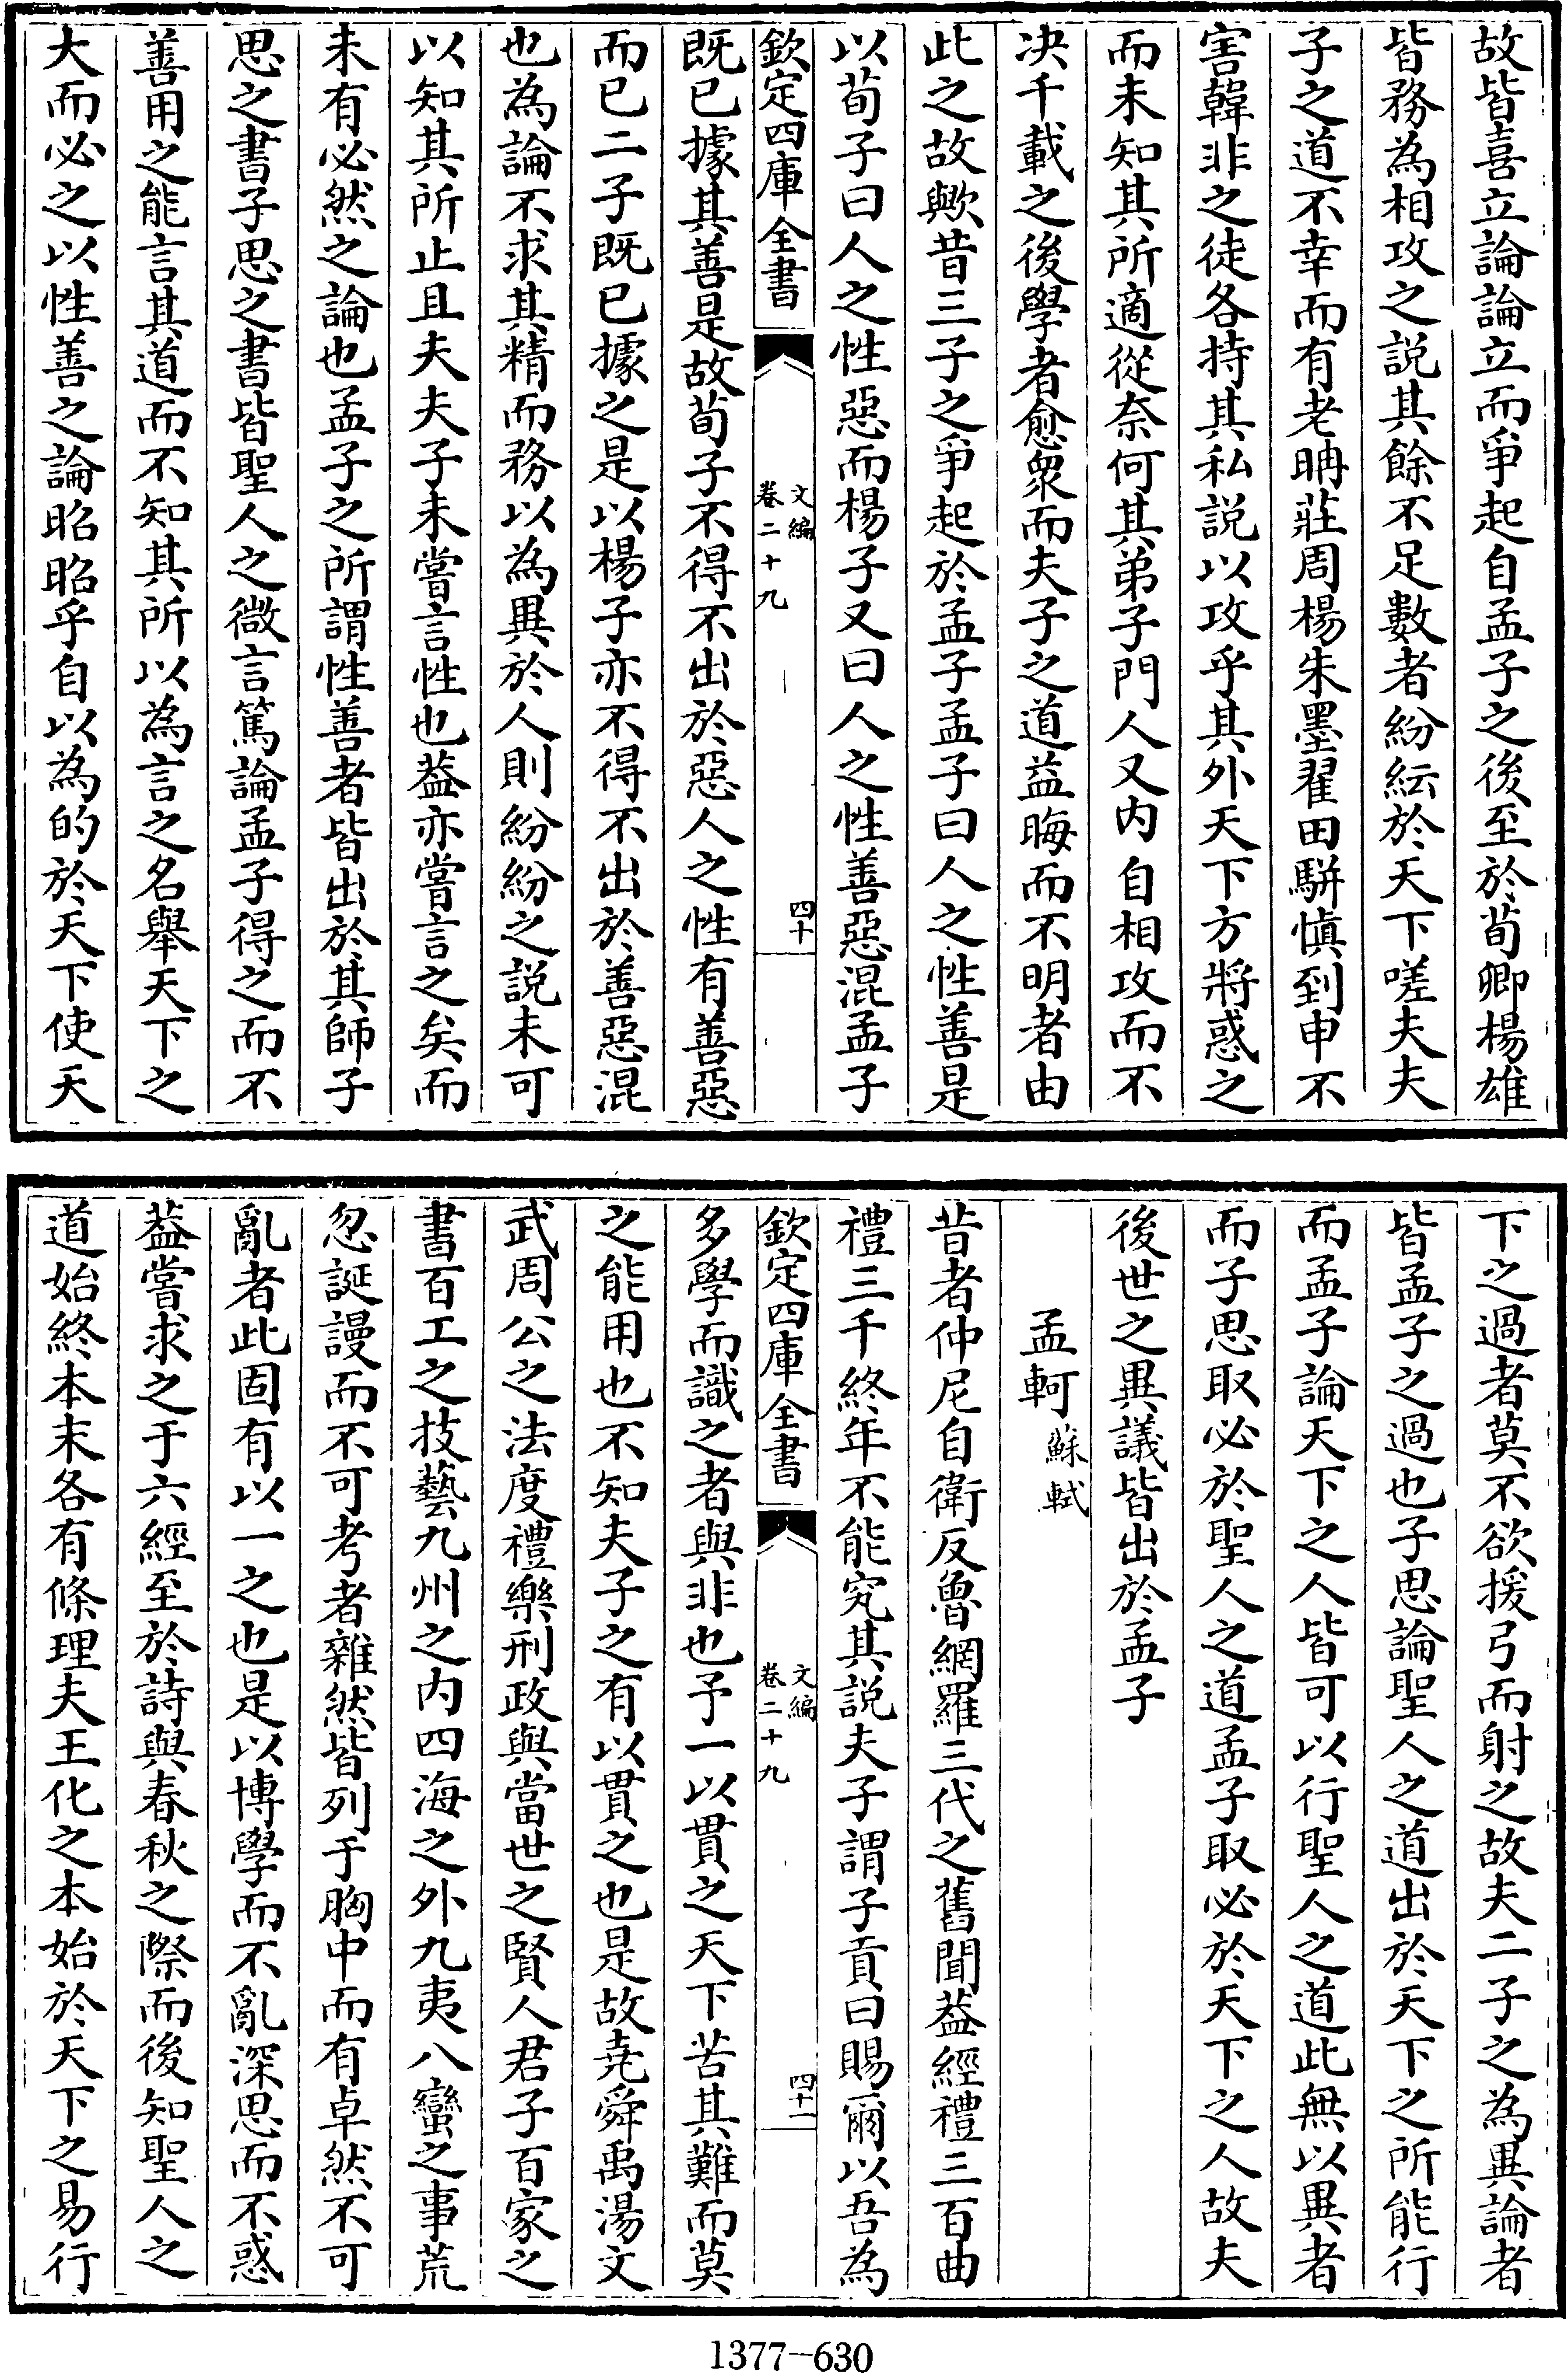 故皆喜立論論立而爭起自孟子之後至於荀卿楊雄
皆務為相攻之說其餘不足數者紛紜於天下嗟夫夫
子之道不幸而有老聃莊周楊朱墨翟田駢慎到申不
害韓非之徒各持其私說以攻乎其外天下方將惑之
而未知其所適從奈何其弟子門人又内自相攻而不
决千載之後學者愈衆而夫子之道益晦而不明者由
此之故歟昔三子之爭起於孟子孟子曰人之性善是
以荀子曰人之性惡而楊子又曰人之性善惡混孟子
欽定四庫全書
文編
卷二十九
四十
既已據其善是故荀子不得不出於惡人之性有善惡
而已二子既已據之是以楊子亦不得不出於善惡混
也為論不求其精而務以為異於人則紛紛之說未可
以知其所止且夫夫子未嘗言性也葢亦嘗言之矣而
未有必然之論也孟子之所謂性善者皆出於其師子
思之書子思之書皆聖人之微言篤論孟子得之而不
善用之能言其道而不知其所以為言之名舉天下之
大而必之以性善之論昭昭乎自以為的於天下使天
下之過者莫不欲援弓而射之故夫二子之為異論者
皆孟子之過也子思論聖人之道出於天下之所能行
而孟子論天下之人皆可以行聖人之道此無以異者
而子思取必於聖人之道孟子取必於天下之人故夫
後世之異議皆出於孟子
孟軻蘇軾
昔者仲尼自衛反魯網羅三代之舊聞葢經禮三百曲
禮三千終年不能究其說夫子謂子貢曰賜爾以吾為
欽定四庫全書
文編
卷二十九
四十一
多學而識之者與非也予一以貫之天下苦其難而莫
之能用也不知夫子之有以貫之也是故堯舜禹湯文
武周公之法度禮樂刑政與當世之賢人君子百家之
書百工之技藝九州之内四海之外九夷八蠻之事荒
忽誕謾而不可考者雜然皆列于胸中而有卓然不可
亂者此固有以一之也是以博學而不亂深思而不惑
葢嘗求之于六經至於詩與春秋之際而後知聖人之
道始終本末各有條理夫王化之本始於天下之易行
1377-630